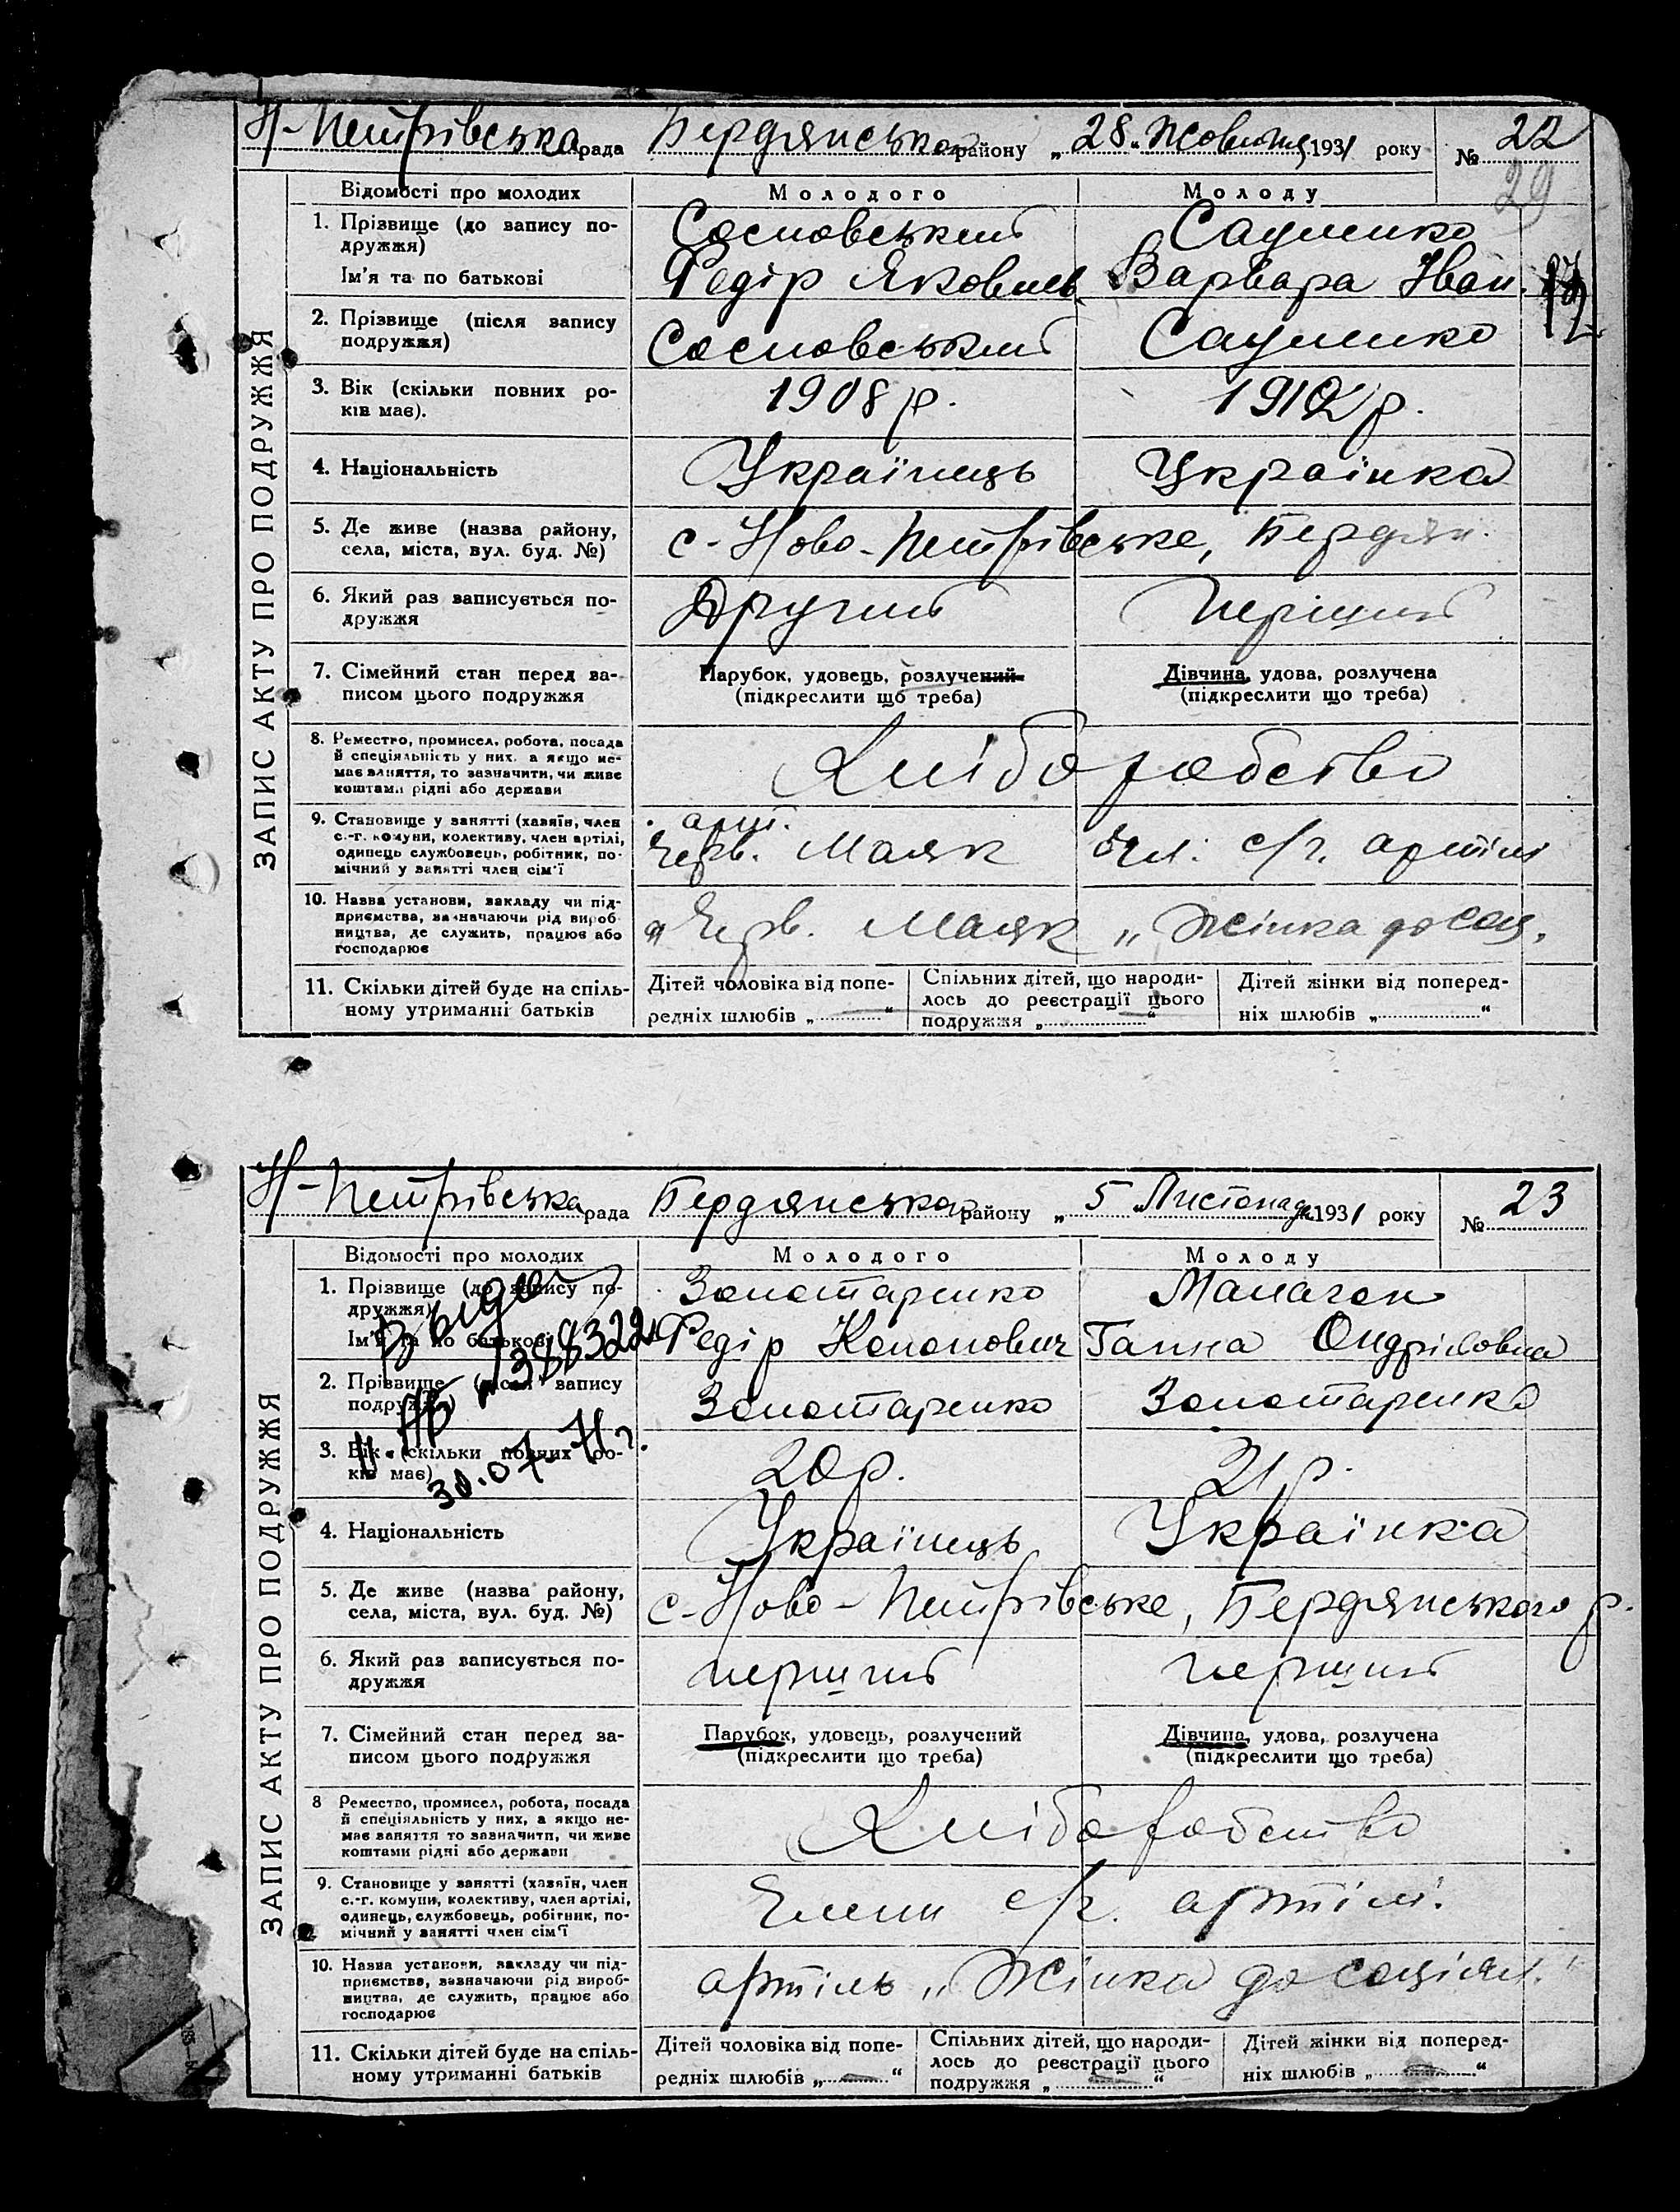 Н-Петрівська рада Бердянського району „28„ Жовтня 1931 року № 22
29
ЗАПИС АКТУ ПРО ПОДРУЖЖЯ
Відомості про молодих Молодого Молоду
1. Прізвище (до запису по-
дружжя) Сосновський
Ім'я та по батькові Федір Яковлев. Варвара Іван.
2. Прізвище (після запису
подружжя) Сосновський
3. Вік (скільки повних ро-
ків має). 1908 р. 1912 р.
4. Національність Українець Українка
5. Де живе (назва району,
села, міста, вул. буд. №) с-Ново-Петрівське, Бердян.
6. Який раз записується по-
дружжя Другий Перший
7. Сімейний стан перед за-
писом цього подружжя
Парубок, удовець, розлучений
(підкреслити що треба)
Дівчина, удова, розлучена
(підкреслити що треба)
8. Ремество, промисел, робота, посада
й спеціяльність у них, а якщо не-
має заняття, то зазначити, чи живе
коштами рідні або держави
Хліборобство
9. Становище у занятті (хазяїн, член
с.-г. комуни, колективу, член артілі,
одинець службовець, робітник, по-
мічний у занятті член сім'ї
арт.
Черв. Маяк Чл. с/г. артілі
10. Назва установи, закладу чи під-
приємства, зазначаючи рід вироб-
ництва, де служить, працює або
господарює
Черв. Маяк „Жінка до соц.
11. Скільки дітей буде на спіль-
ному утриманні батьків
Дітей чоловіка від попе-
редніх шлюбів „ “
Спільних дітей, що народи-
лось до реєстрації цього
подружжя „ “
Дітей жінки від поперед-
ніх шлюбів „ “
Н-Петрівська рада Бердянського району „ 5 „ Листопада 1931 року № 23
ЗАПИС АКТУ ПРО ПОДРУЖЖЯ
Відомості про молодих Молодого Молоду
1. Прізвище (до запису по-
дружжя) Золотаренко
Ім'я та по батькові Федір Кононович Ганна Ондріївовна
2. Прізвище (після запису
подружжя) Золотаренко Золотаренко
3. Вік (скільки повних ро-
ків має) 20 р. 21 р.
30.07-71 г.
4. Національність Українець Українка
5. Де живе (назва району,
села, міста, вул. буд. №) с-Ново-Петрівське, Бердянського р.
6. Який раз записується по-
дружжя перший перший
7. Сімейний стан перед за-
писом цього подружжя
Парубок, удовець, розлучений
(підкреслити що треба)
Дівчина, удова, розлучена
(підкреслити що треба)
8 Ремество, промисел, робота, посада
й спеціяльність у них, а якщо не-
має заняття то зазначити, чи живе
коштами рідні або держави
Хліборобство
9. Становище у занятті (хазяїн, член
с.-г. комуни, колективу, член артілі,
одинець, службовець, робітник, по-
мічний у занятті член сім'ї
Члени с/г. артілі.
10. Назва установи, закладу чи під-
приємства, зазначаючи рід вироб-
ництва, де служить, працює або
господарює
артіль „Жінка до соціял.“
11. Скільки дітей буде на спіль-
ному утриманні батьків
Дітей чоловіка від попе-
редніх шлюбів „ “
Спільних дітей, що народи-
лось до реєстрації цього
подружжя „ “
Дітей жінки від поперед-
ніх шлюбів „ “